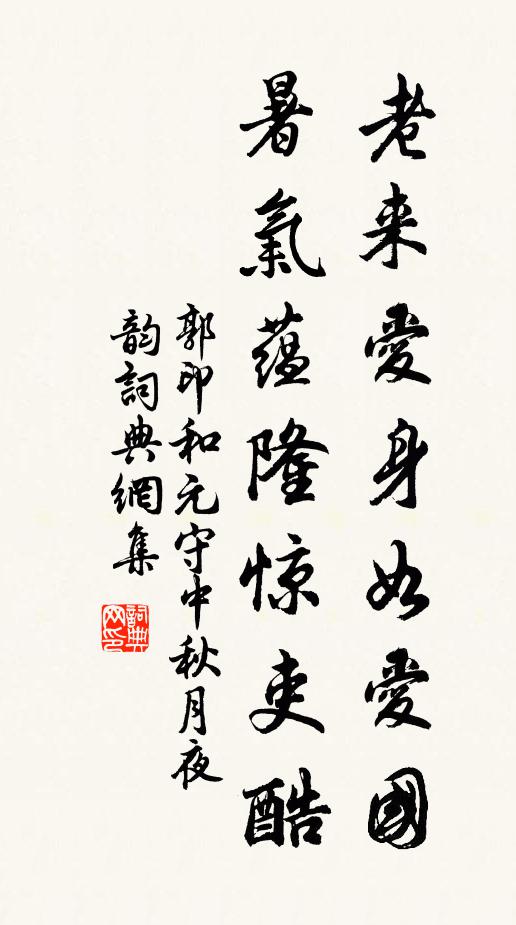 老来愛身如愛國
暑氣蕴隆惊吏酷
郭印和元守中秋月夜
韵詞典網集
詞典网印